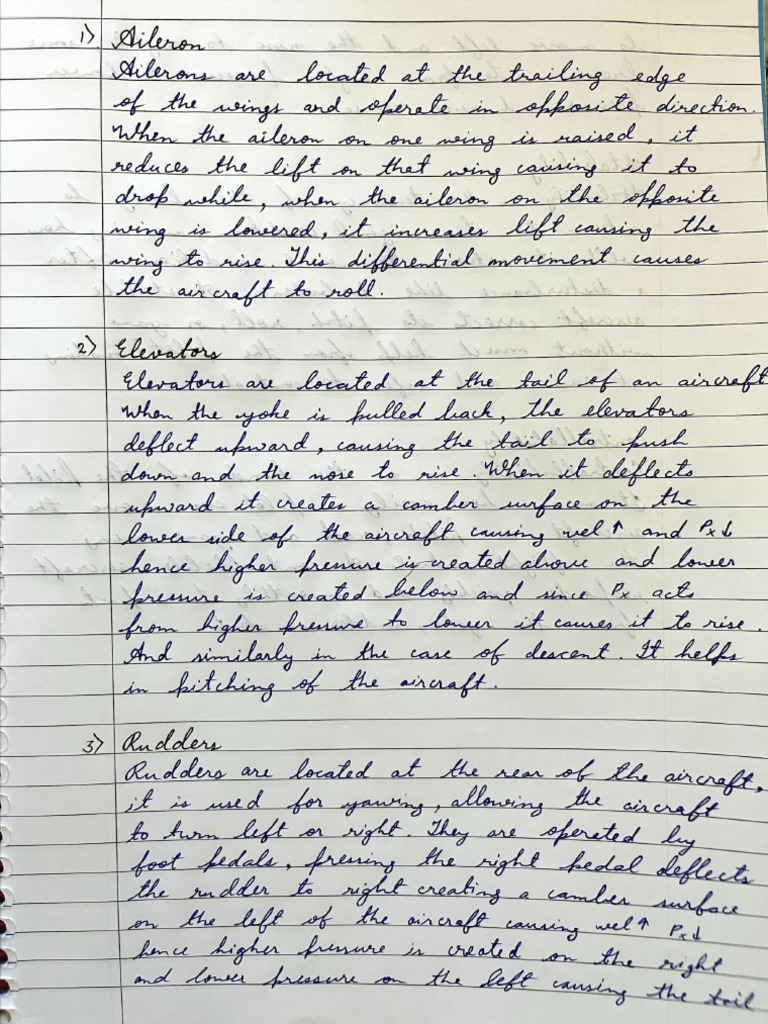 1) Aileron
Ailerons are located at the trailing edge
of the wings and operate in opposite direction.
When the aileron on one wing is raised, it
reduces the lift on that wing causing it to
drop while, when the aileron on the opposite
wing is lowered, it increases lift causing the
wing to rise. This differential movement causes
the aircraft to roll.
2) Elevators
Elevators are located at the tail of an aircraft
When the yoke is pulled back, the elevators
deflect upward, causing the tail to push
down and the nose to rise. When it deflects
upward it creates a camber surface on the
lower side of the aircraft causing vel ↑ and Px ↓
hence higher pressure is created above and lower
pressure is created below and since Px acts
from higher pressure to lower it causes it to rise.
And similarly in the case of descent. It helps
in pitching of the aircraft.
3) Rudders
Rudders are located at the rear of the aircraft,
it is used for yawing, allowing the aircraft
to turn left or right. They are operated by
foot pedals, pressing the right pedal deflects
the rudder to right creating a camber surface
on the left of the aircraft causing vel ↑ Px ↓
hence higher pressure is created on the right
and lower pressure on the left causing the tail